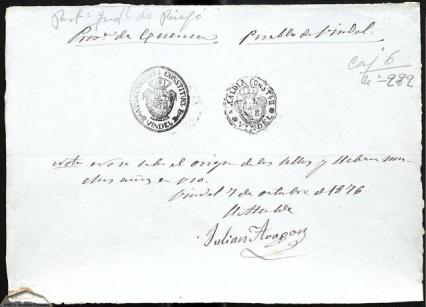 Part.º Jud.l de Priego
Prov.ª de Cuenca Pueblo de Vindel
Caj 6
nº 282
AYUNTAMIENTO CONSTITUC
VINDEL
ALCALDIA CONSTITU
VINDEL
sobre el origen de los sellos y llevan mu
chos años en uso.
Vindel 7 de octubre de 1876
El Alcalde
Julian Aragon